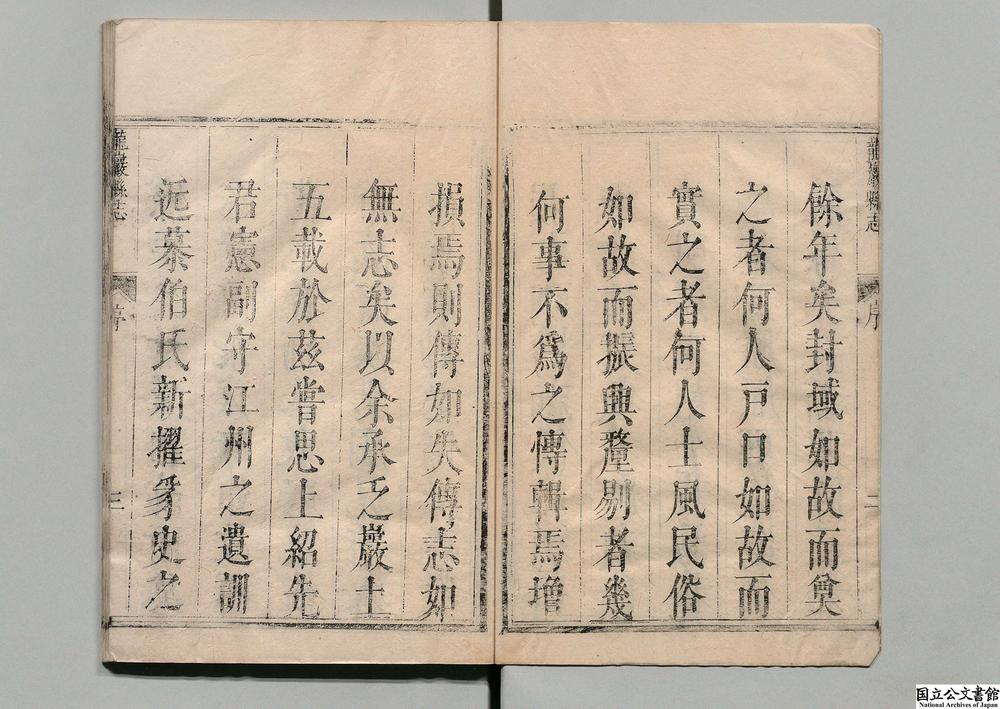 龍巖縣志
序
二
餘年矣封域如故而奠
之者何人戸口如故而
實之者何人士風民俗
如故而振興釐剔者幾
何事不爲之傳輯焉增
損焉則傳如失傳志如
無志矣以余承乏巖土
五載於茲嘗思上紹先
君憲副守江州之遺訓
近慕伯氏新擢豸史之
龍巖縣志
序
三
国立公文書館
National Archives of Japan